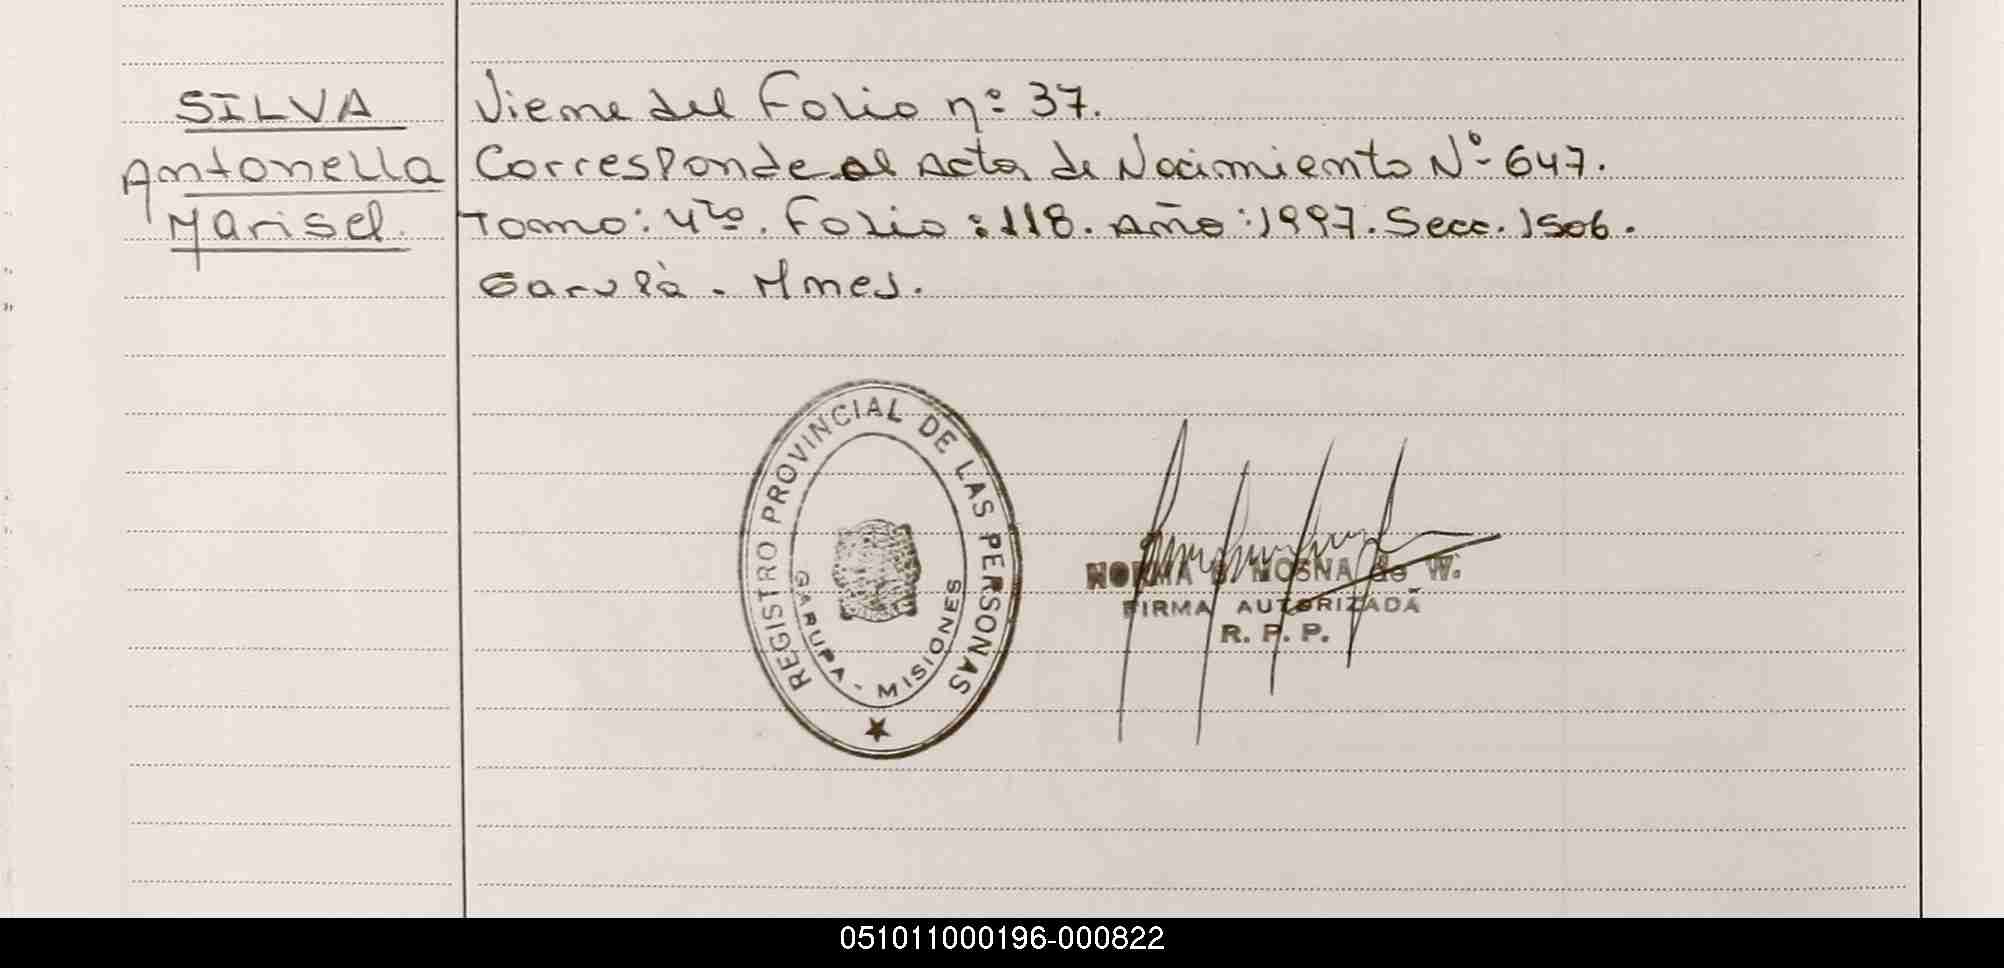 SILVA
Antonella
Marisel.
Viene del Folio nº 37.
Corresponde al Acta de Nacimiento Nº 647.
Tomo: 4to. Folio: 118. Año: 1997. Secc. 1506.
Garupà - Mnes.
REGISTRO PROVINCIAL DE LAS PERSONAS
GARUPA - MISIONES
NORMA MOSNA de W.
FIRMA AUTORIZADA
R. P. P.
051011000196-000822